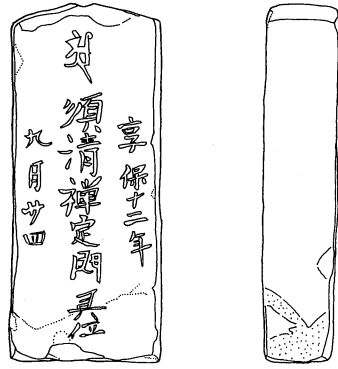 享保十二年
須清禅定門灵位
九月廿四